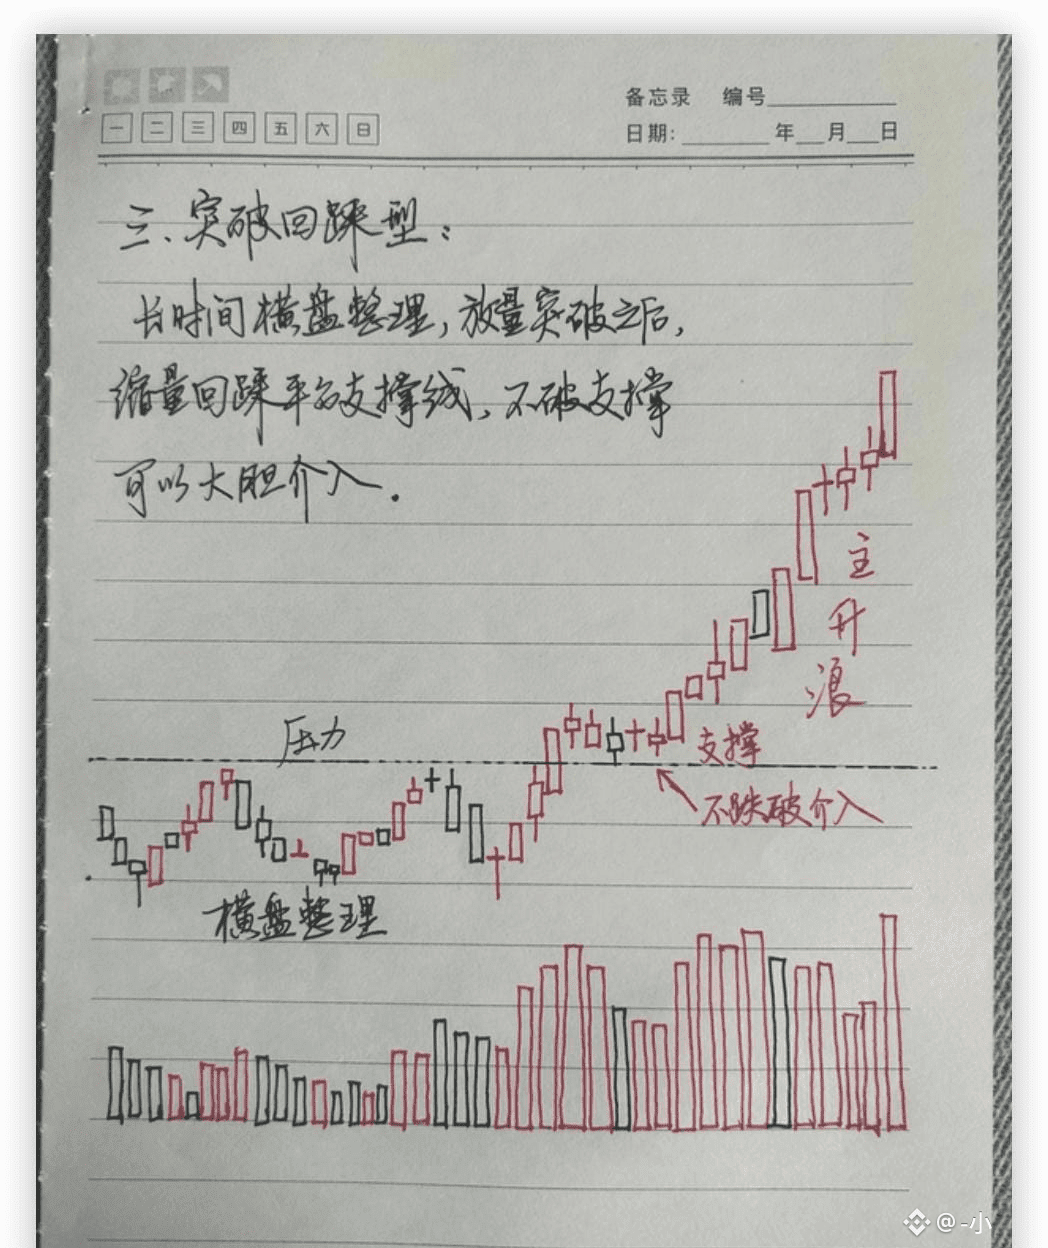 备忘录 编号
一 二 三 四 五 六 日
日期: 年 月 日
三、突破回踩型:
长时间横盘整理,放量突破之后,
缩量回踩平台支撑线,不破支撑
可以大胆介入.
主升浪
压力
支撑
不跌破介入
横盘整理
@-小